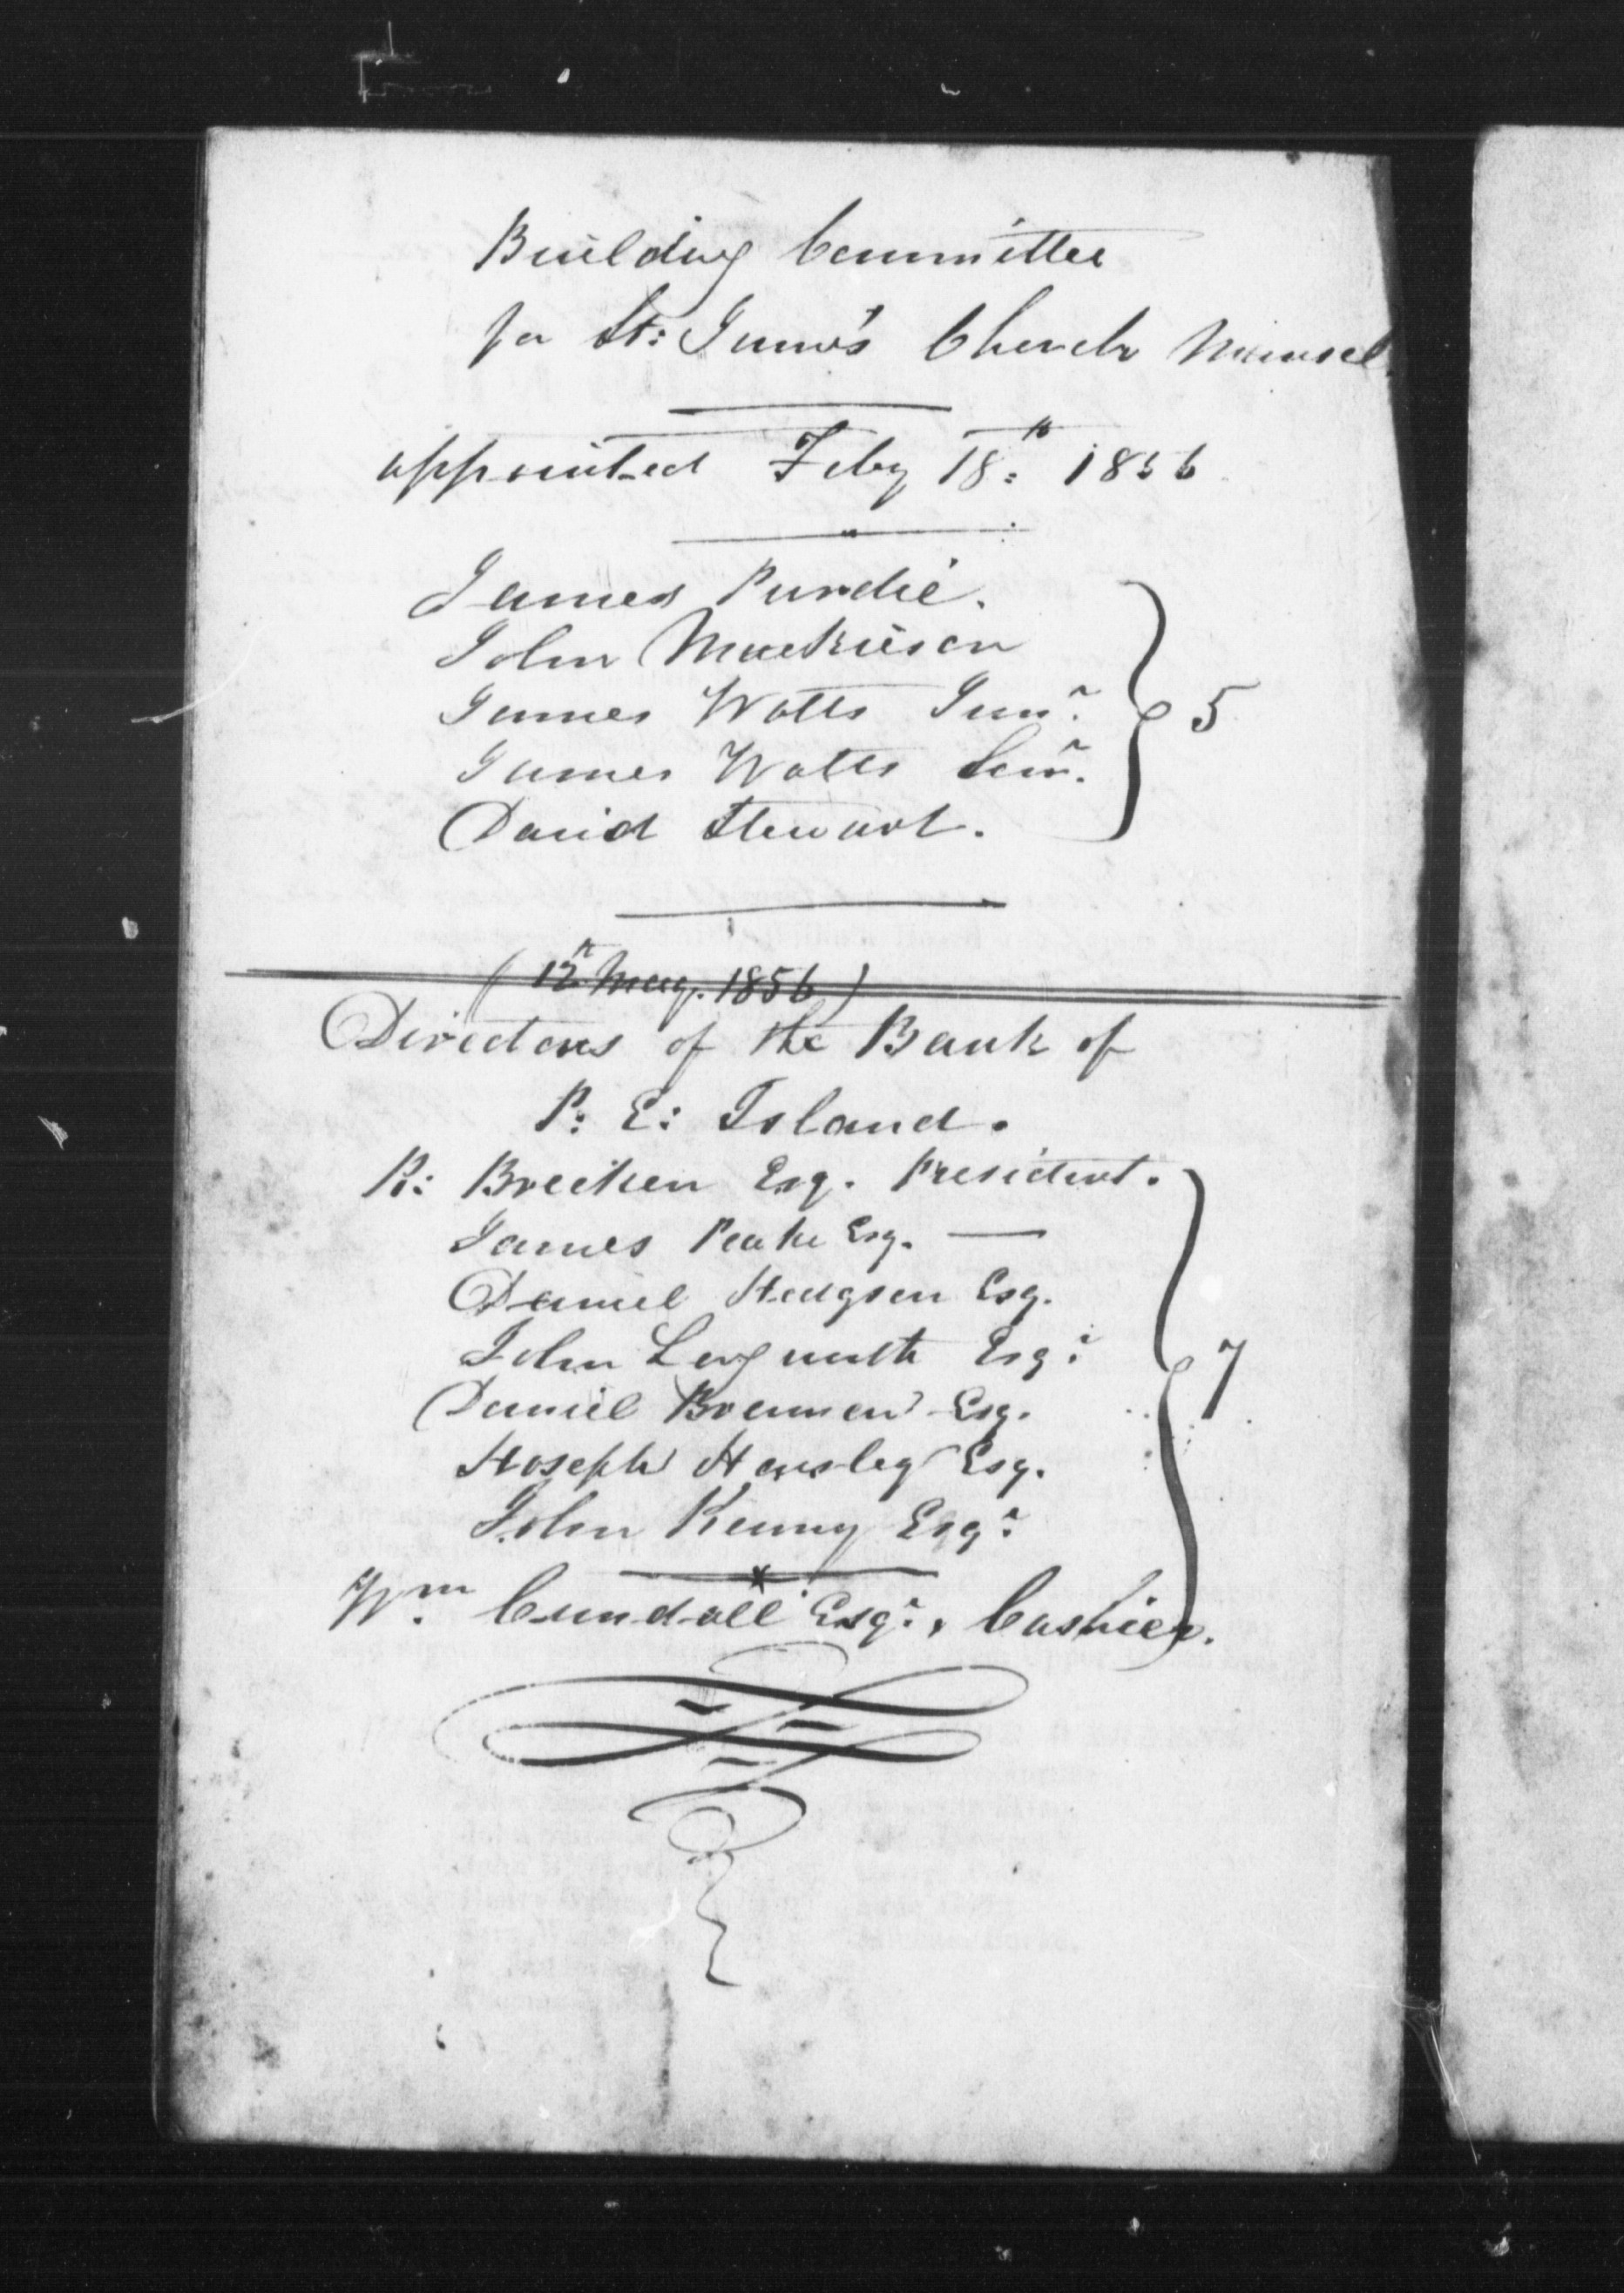 Building Committee
for St: James's Church Manse
appointed Feby 18th 1856
James Purdie.
John Mackieson
James Watts Junr.
James Watts Senr.
David Stewart.
5
(12th May. 1856)
Directors of the Bank of
P: E: Island.
R: Brecken Esq. President.
James Peake Esq. —
Daniel Hodgson Esq.
John Longworth Esqr
Daniel Brennan Esq.
Joseph Hensley Esq.
John Kenny Esqr
7
Wm. Cundall Esqr, Cashier.